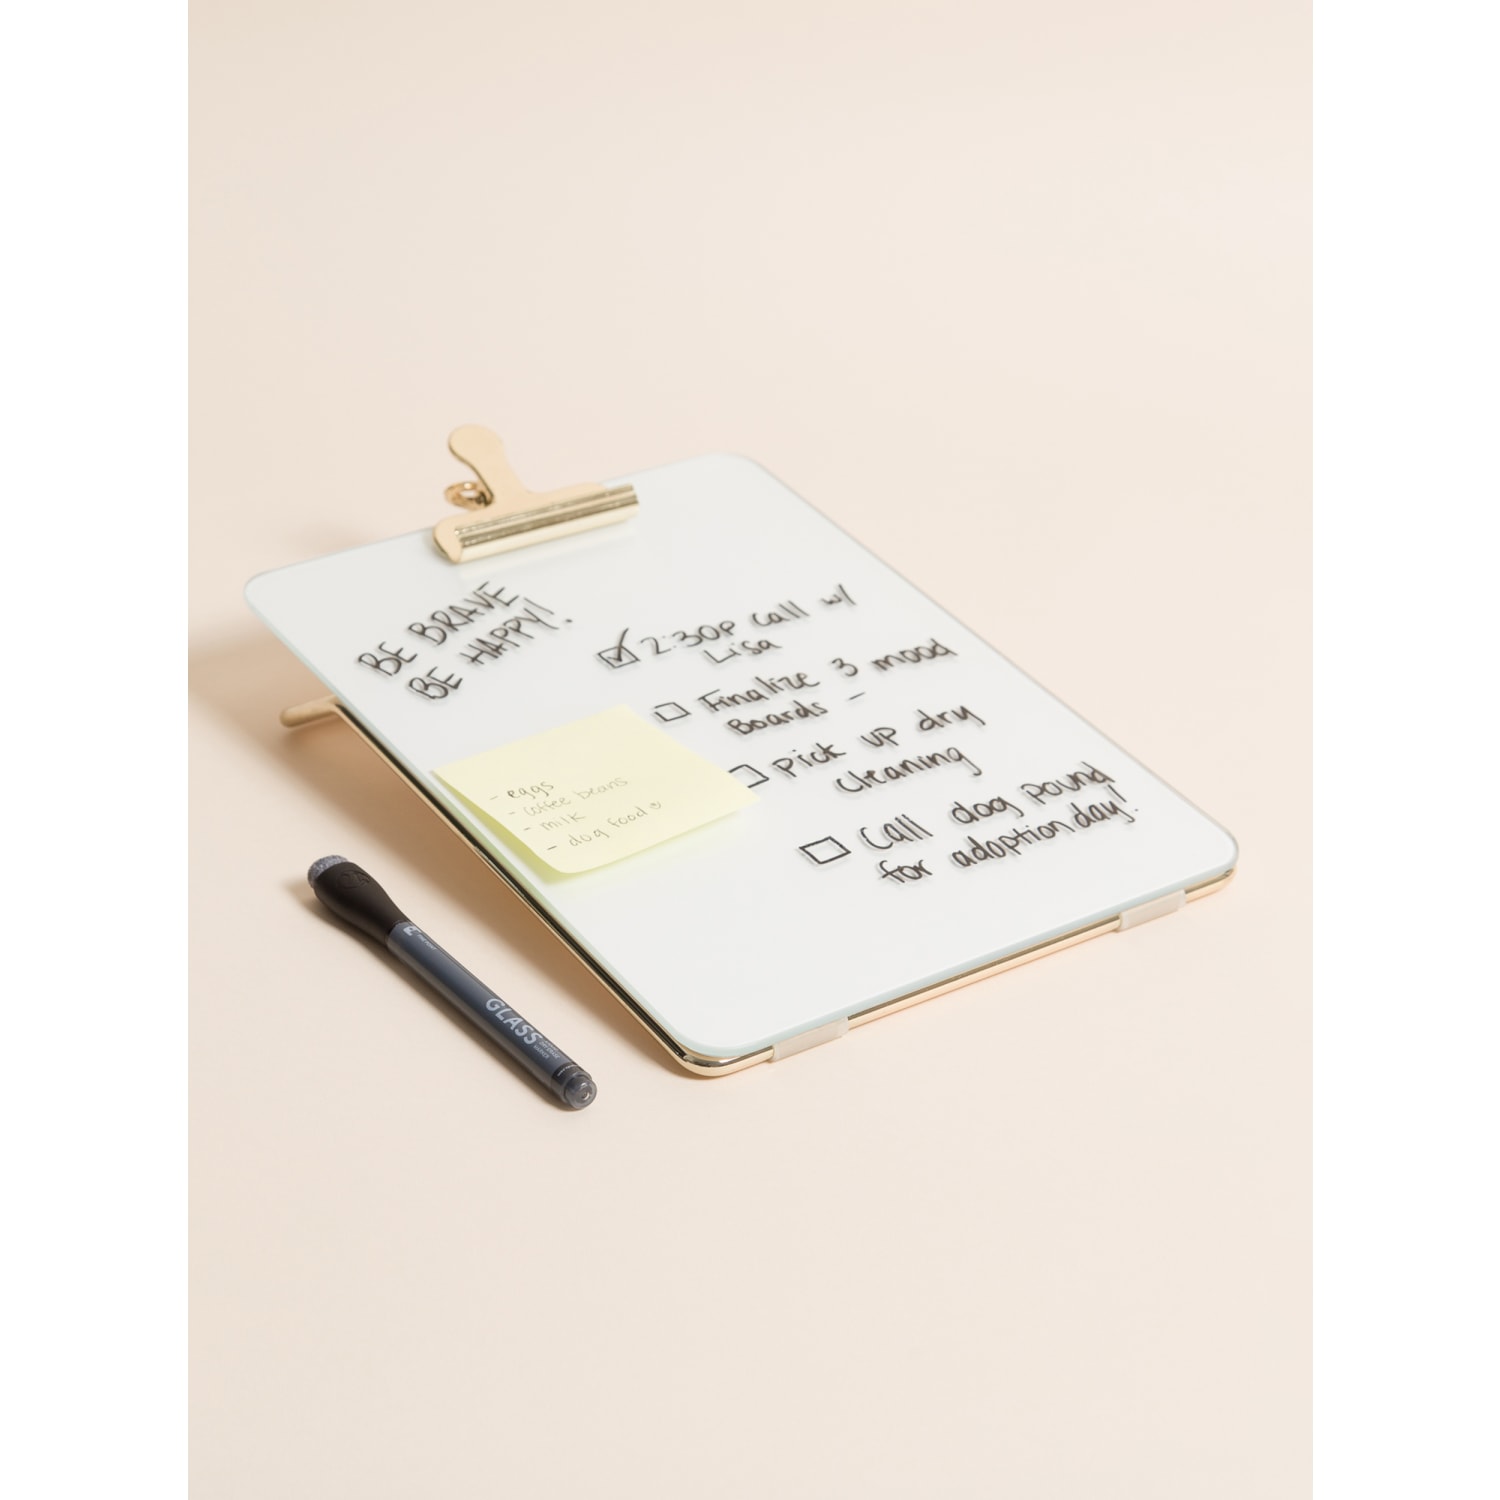 BE BRAVE
BE HAPPY!
2:30P call w/
Lisa
Finalize 3 mood
Boards –
Pick UP dry
Cleaning
Call dog pound
for adoption day!
- eggs
- coffee beans
- milk
- dog food
GLASS